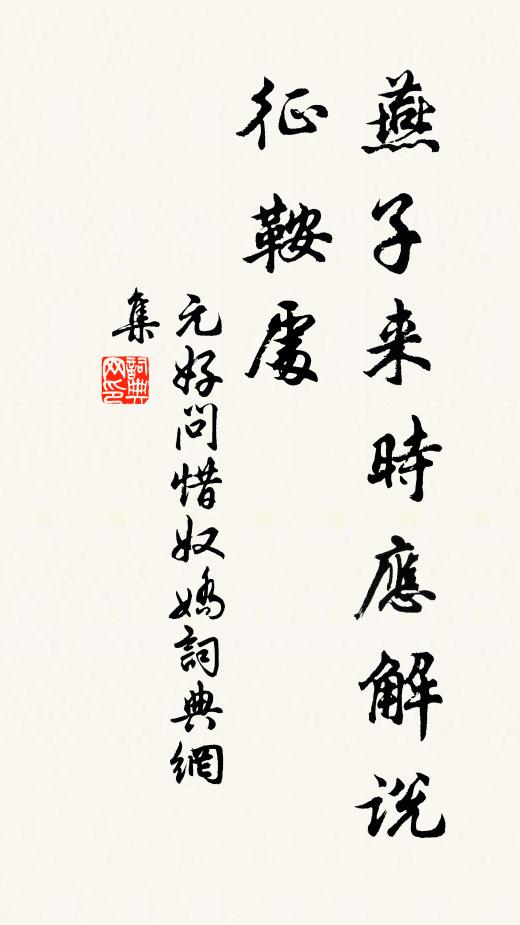 燕子来時應解説
征鞍處
元好問惜奴嬌詞典網
集
詞典网印